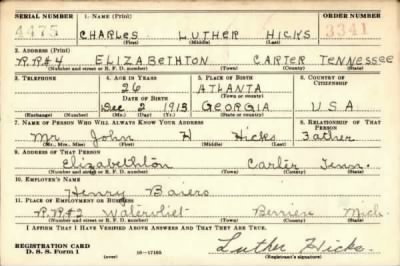 SERIAL NUMBER 1. NAME (Print) ORDER NUMBER
4475 CHARLES LUTHER HICKS 3341
(First) (Middle) (Last)
2. ADDRESS (Print)
R.R#4 ELIZABETHTON CARTER TENNESSEE
(Number and street or R. F. D. number) (Town) (County) (State)
3. TELEPHONE 4. AGE IN YEARS 5. PLACE OF BIRTH 6. COUNTRY OF CITIZENSHIP
26 ATLANTA
DATE OF BIRTH (Town or county)
Dec 2 1913 GEORGIA USA
(Exchange) (Number) (Mo.) (Day) (Yr.) (State or country)
7. NAME OF PERSON WHO WILL ALWAYS KNOW YOUR ADDRESS 8. RELATIONSHIP OF THAT PERSON
Mr John H Hicks Father
(Mr., Mrs., Miss) (First) (Middle) (Last)
9. ADDRESS OF THAT PERSON
Elizabethton Carter Tenn.
(Number and street or R. F. D. number) (Town) (County) (State)
10. EMPLOYER'S NAME
Henry Baiers
11. PLACE OF EMPLOYMENT OR BUSINESS
R.R#2 Watervliet Berrien Mich
(Number and street or R. F. D. number) (Town) (County) (State)
I AFFIRM THAT I HAVE VERIFIED ABOVE ANSWERS AND THAT THEY ARE TRUE.
REGISTRATION CARD
D. S. S. Form 1 (over) 16—17105 Luther Hicks
(Registrant's signature)